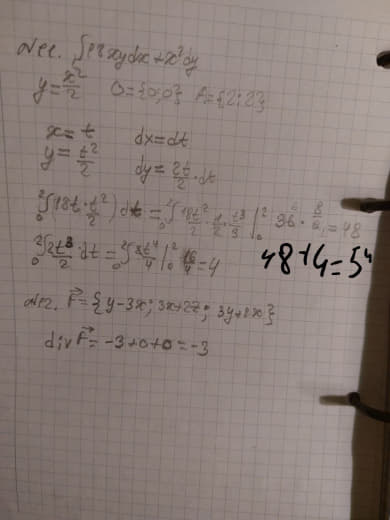 №1. ∫18xydx+x²dy
y=x²/2 O={0;0} A={2;2}
x=t dx=dt
y=t²/2 dy=2t/2·dt
₀²∫(18t·t²/2)dt=₀²∫18t²/2·1/2·t³/3|₀² 36·8/2=48
₀²∫2t³/2·dt=₀²∫2t⁴/4|₀² 16/4=4 48+4=54
№2. F⃗={y-3x; 3x+2z; 3y+8x}
div F⃗=-3+0+0=-3